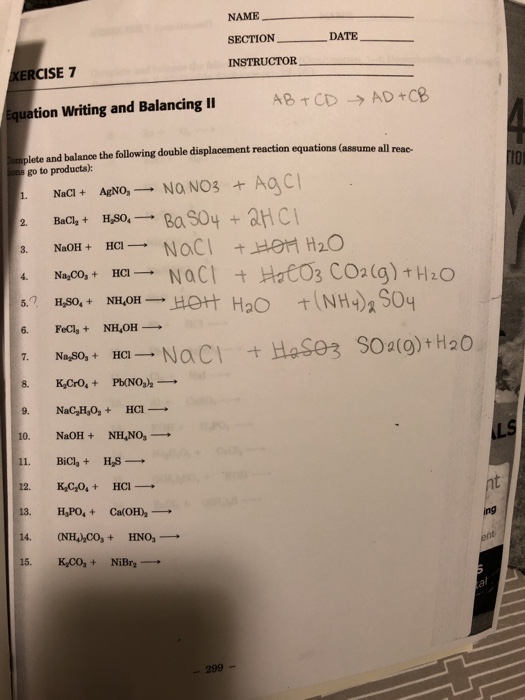 NAME
SECTION DATE
INSTRUCTOR
XERCISE 7
Equation Writing and Balancing II
AB + CD → AD + CB
mplete and balance the following double displacement reaction equations (assume all reac-
ons go to products):
1. NaCl + AgNO₃ → NaNO3 + AgCl
2. BaCl₂ + H₂SO₄ → BaSO4 + 2HCl
3. NaOH + HCl → NaCl + HOH H2O
4. Na₂CO₃ + HCl → NaCl + H2CO3 CO2(g) + H2O
5.? H₂SO₄ + NH₄OH → HOH H2O + (NH4)2 SO4
6. FeCl₃ + NH₄OH →
7. Na₂SO₃ + HCl → NaCl + H2SO3 SO2(g) + H2O
8. K₂CrO₄ + Pb(NO₃)₂ →
9. NaC₂H₃O₂ + HCl →
10. NaOH + NH₄NO₃ →
11. BiCl₃ + H₂S →
12. K₂C₂O₄ + HCl →
13. H₃PO₄ + Ca(OH)₂ →
14. (NH₄)₂CO₃ + HNO₃ →
15. K₂CO₃ + NiBr₂ →
- 299 -
ALS
nt
ing
ent